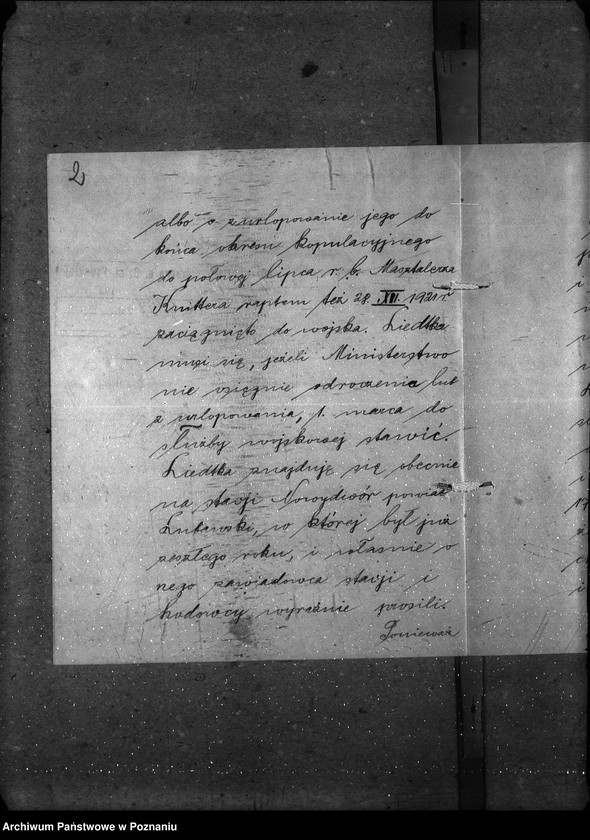 2
albo o zurlopowanie jego do
końca okresu kopulacyjnego
do połowy lipca r. b. Masztalerza
Knittera raptem też 28. XII. 1921 r.
zaciągnięto do wojska. Liedtka
musi się, jeżeli Ministerstwo
nie osięgnie odroczenia lub
zurlopowania, 1. marca do
służby wojskowej stawić.
Liedtka znajduję się obecnie
na stacji Nowydwór powiat
w której był już
zeszłego roku, i właśnie o
nego zawiadowca stacji i
hodowcy wyraźnie prosili.
Ponieważ
Archiwum Państwowe w Poznaniu